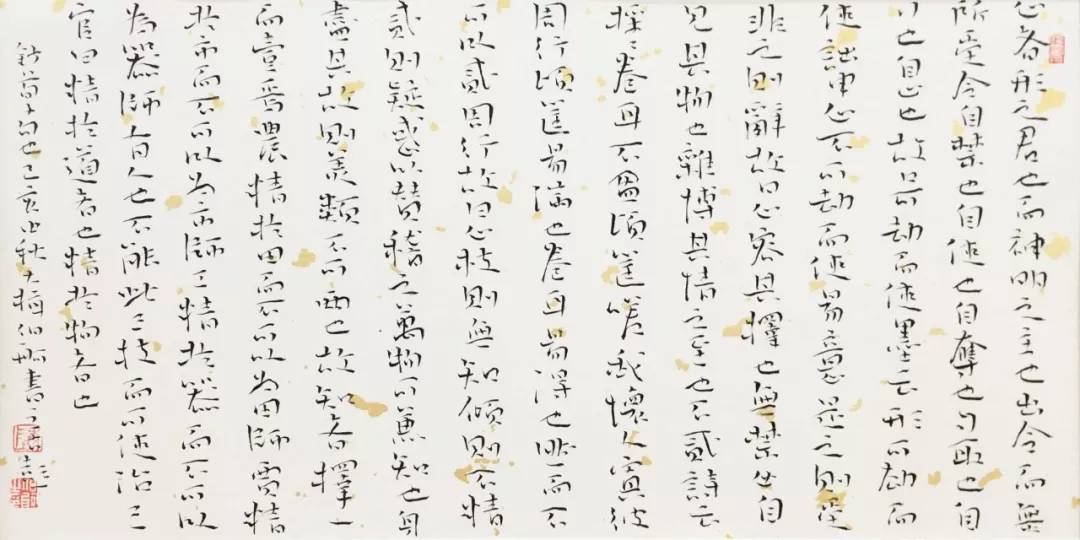 心者形之君也而神明之主也出令而無
所受令自禁也自使也自奪也自取也自
行也自止也故口可劫而使墨云形可劫而
使詘申心不可劫而使易意是之則受
非之則辭故曰心容其擇也無禁必自
見其物也雜博其情之至也不貳詩云
採〻卷耳不盈頃筐嗟我懷人寘彼
周行頃筐易滿也卷耳易得也然而不
可以貳周行故曰心枝則無知傾則不精
貳則疑惑以贊稽之萬物可兼知也身
盡其故則美類不可兩也故知者擇一
而壹焉農精於田而不可以為田師賈精
於市而不可以為市師工精於器而不可以
為器師有人也不能此三技而可使治三
官曰精於道者也精於物者也
荀子句也己亥中秋大梅書